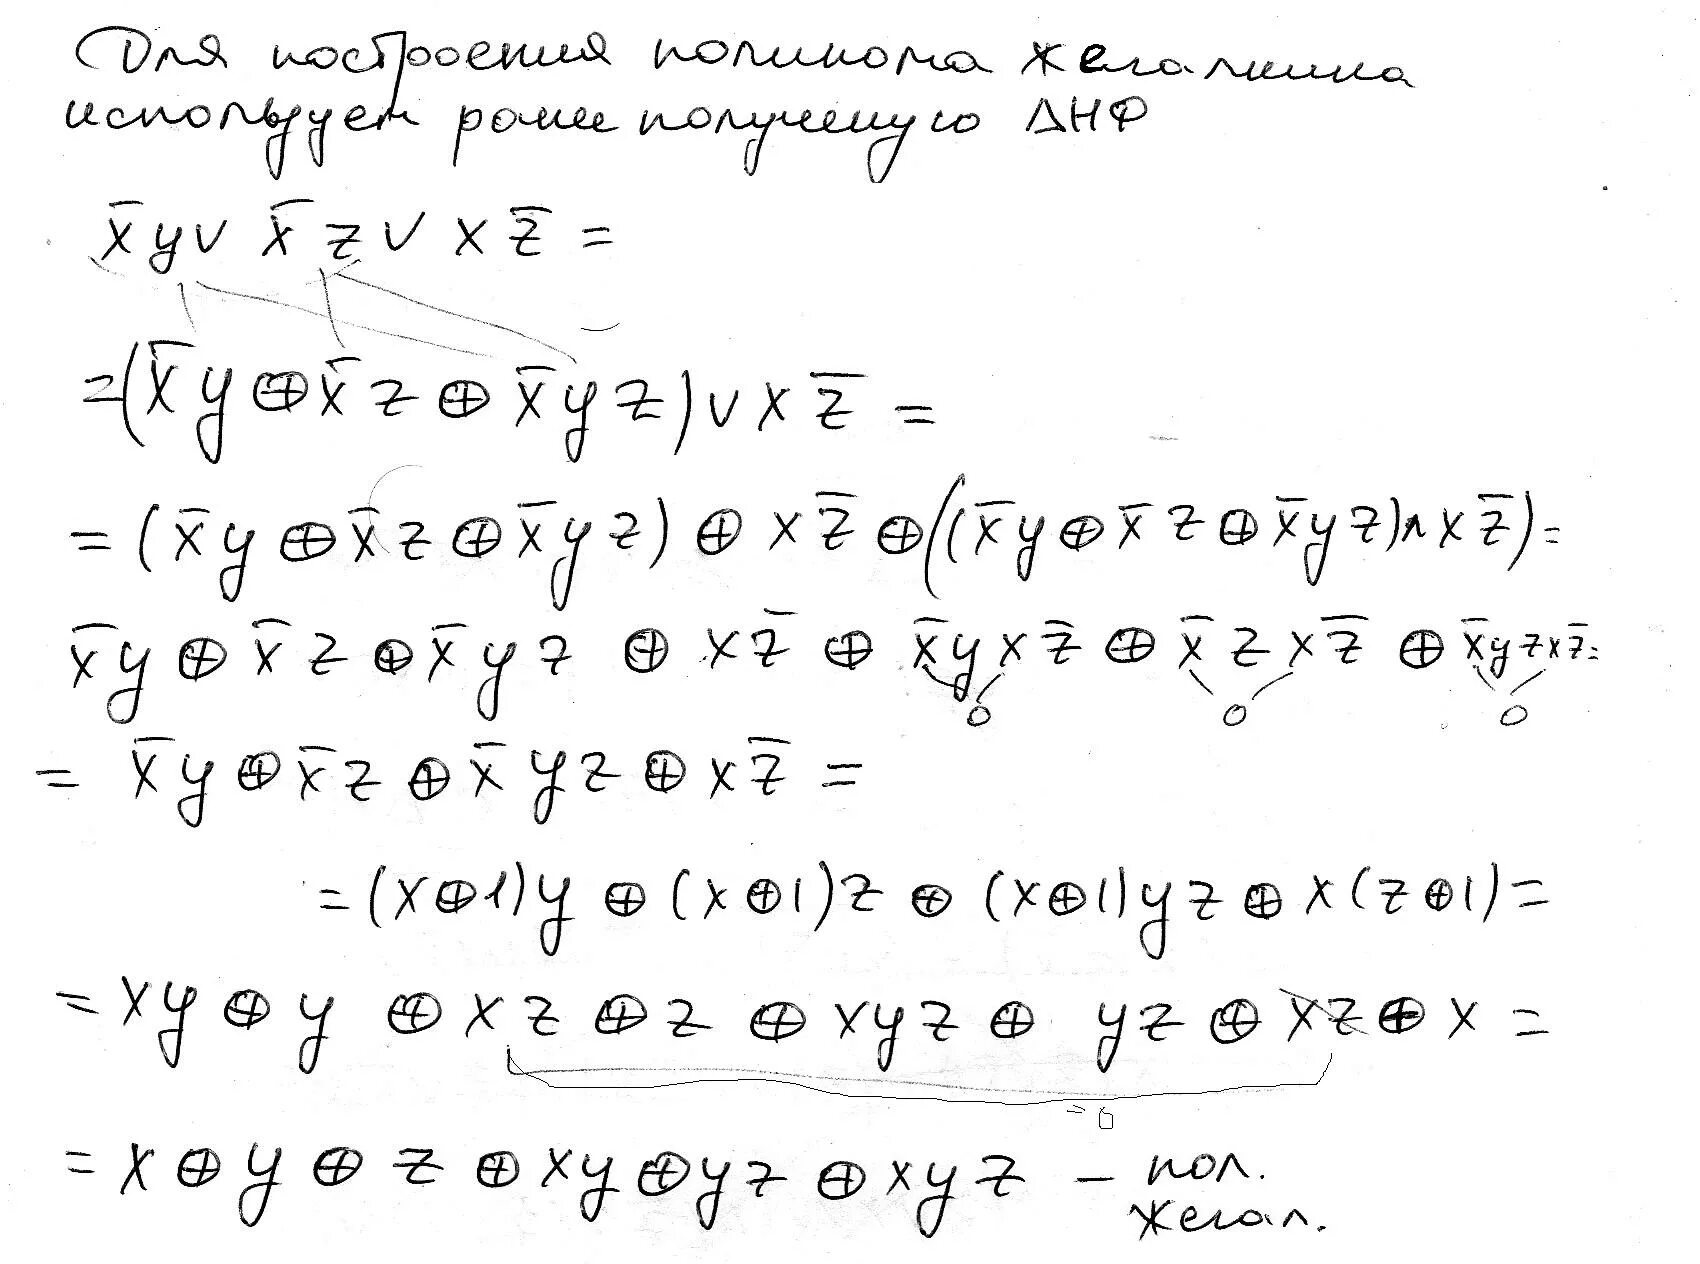 Для построения полинома Жегалкина
используем ранее полученную ДНФ
x̄y∨ x̄z∨ xz̄ =
=(x̄y⊕x̄z⊕x̄yz)∨xz̄ =
=(x̄y⊕x̄z⊕x̄yz)⊕xz̄⊕((x̄y⊕x̄z⊕x̄yz)∧xz̄)=
x̄y⊕x̄z⊕x̄yz⊕xz̄⊕x̄yxz̄⊕x̄zxz̄⊕x̄yzxz̄=
0 0 0
= x̄y⊕x̄z⊕x̄yz⊕xz̄ =
=(x⊕1)y⊕(x⊕1)z⊕(x⊕1)yz⊕x(z⊕1)=
= xy⊕y⊕xz⊕z⊕xyz⊕yz⊕xz⊕x =
=0
= x⊕y⊕z⊕xy⊕yz⊕xyz – пол.
Жегал.